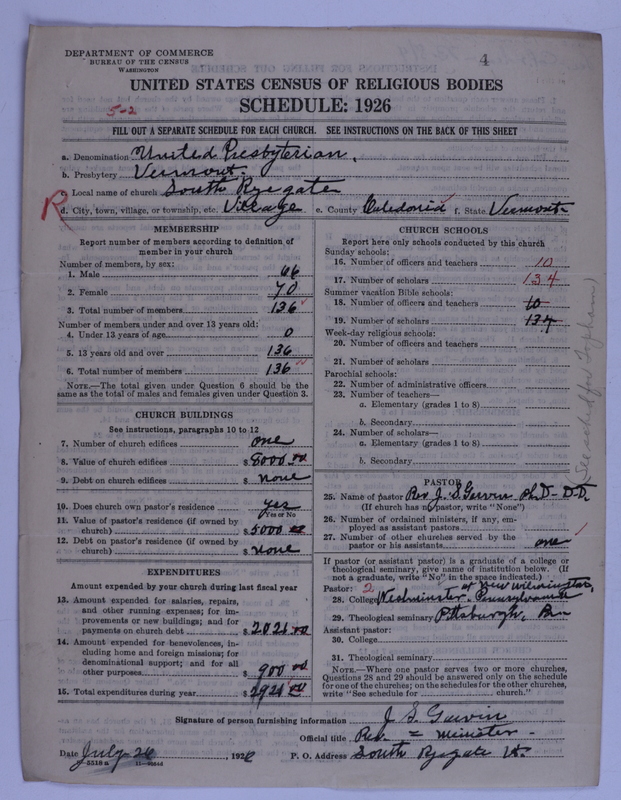 DEPARTMENT OF COMMERCE
BUREAU OF THE CENSUS
WASHINGTON
4
UNITED STATES CENSUS OF RELIGIOUS BODIES
SCHEDULE: 1926
5-2
FILL OUT A SEPARATE SCHEDULE FOR EACH CHURCH. SEE INSTRUCTIONS ON THE BACK OF THIS SHEET
a. Denomination United Presbyterian.
b. Presbytery Vermont.
c. Local name of church South Ryegate
R
d. City, town, village, or township, etc. Village e. County Caledonia f. State Vermont
MEMBERSHIP
Report number of members according to definition of
member in your church
Number of members, by sex:
1. Male 66
2. Female 70
3. Total number of members 136
Number of members under and over 13 years old:
4. Under 13 years of age 0
5. 13 years old and over 136
6. Total number of members 136
NOTE.—The total given under Question 6 should be the
same as the total of males and females given under Question 3.
CHURCH BUILDINGS
See instructions, paragraphs 10 to 12
7. Number of church edifices one
8. Value of church edifices $ 8000.00
9. Debt on church edifices $ none
10. Does church own pastor's residence yes
Yes or No
11. Value of pastor's residence (if owned by
church) $ 5000
12. Debt on pastor's residence (if owned by
church) $ none
EXPENDITURES
Amount expended by your church during last fiscal year
13. Amount expended for salaries, repairs,
and other running expenses; for im-
provements or new buildings; and for
payments on church debt $ 2021.00
14. Amount expended for benevolences, in-
cluding home and foreign missions; for
denominational support; and for all
other purposes $ 900.00
15. Total expenditures during year $ 2921.00
CHURCH SCHOOLS
Report here only schools conducted by this church
Sunday schools:
16. Number of officers and teachers 10
17. Number of scholars 134
Summer vacation Bible schools:
18. Number of officers and teachers 10
19. Number of scholars 134
Week-day religious schools:
20. Number of officers and teachers
21. Number of scholars
Parochial schools:
22. Number of administrative officers
23. Number of teachers—
a. Elementary (grades 1 to 8)
b. Secondary
24. Number of scholars—
a. Elementary (grades 1 to 8)
b. Secondary
See sched for Topham
PASTOR
25. Name of pastor Rev J. S. Garvin Ph.D - D.D.
(If church has no pastor, write "None")
26. Number of ordained ministers, if any, em-
ployed as assistant pastors
27. Number of other churches served by the
pastor or his assistants one
If pastor (or assistant pastor) is a graduate of a college or
theological seminary, give name of institution below. (If
not a graduate, write "No" in the space indicated.)
Pastor: 2 at New Wilmington,
28. College Westminster. Pennsylvania
29. Theological seminary Pittsburgh,
Assistant pastor:
30. College
31. Theological seminary
NOTE.—Where one pastor serves two or more churches,
Questions 28 and 29 should be answered only on the schedule
for one of the churches; on the schedules for the other churches,
write "See schedule for church."
Signature of person furnishing information J. S. Garvin
Official title Rev. = minister -
Date July - 26, 1926 P. O. Address South Ryegate Vt.